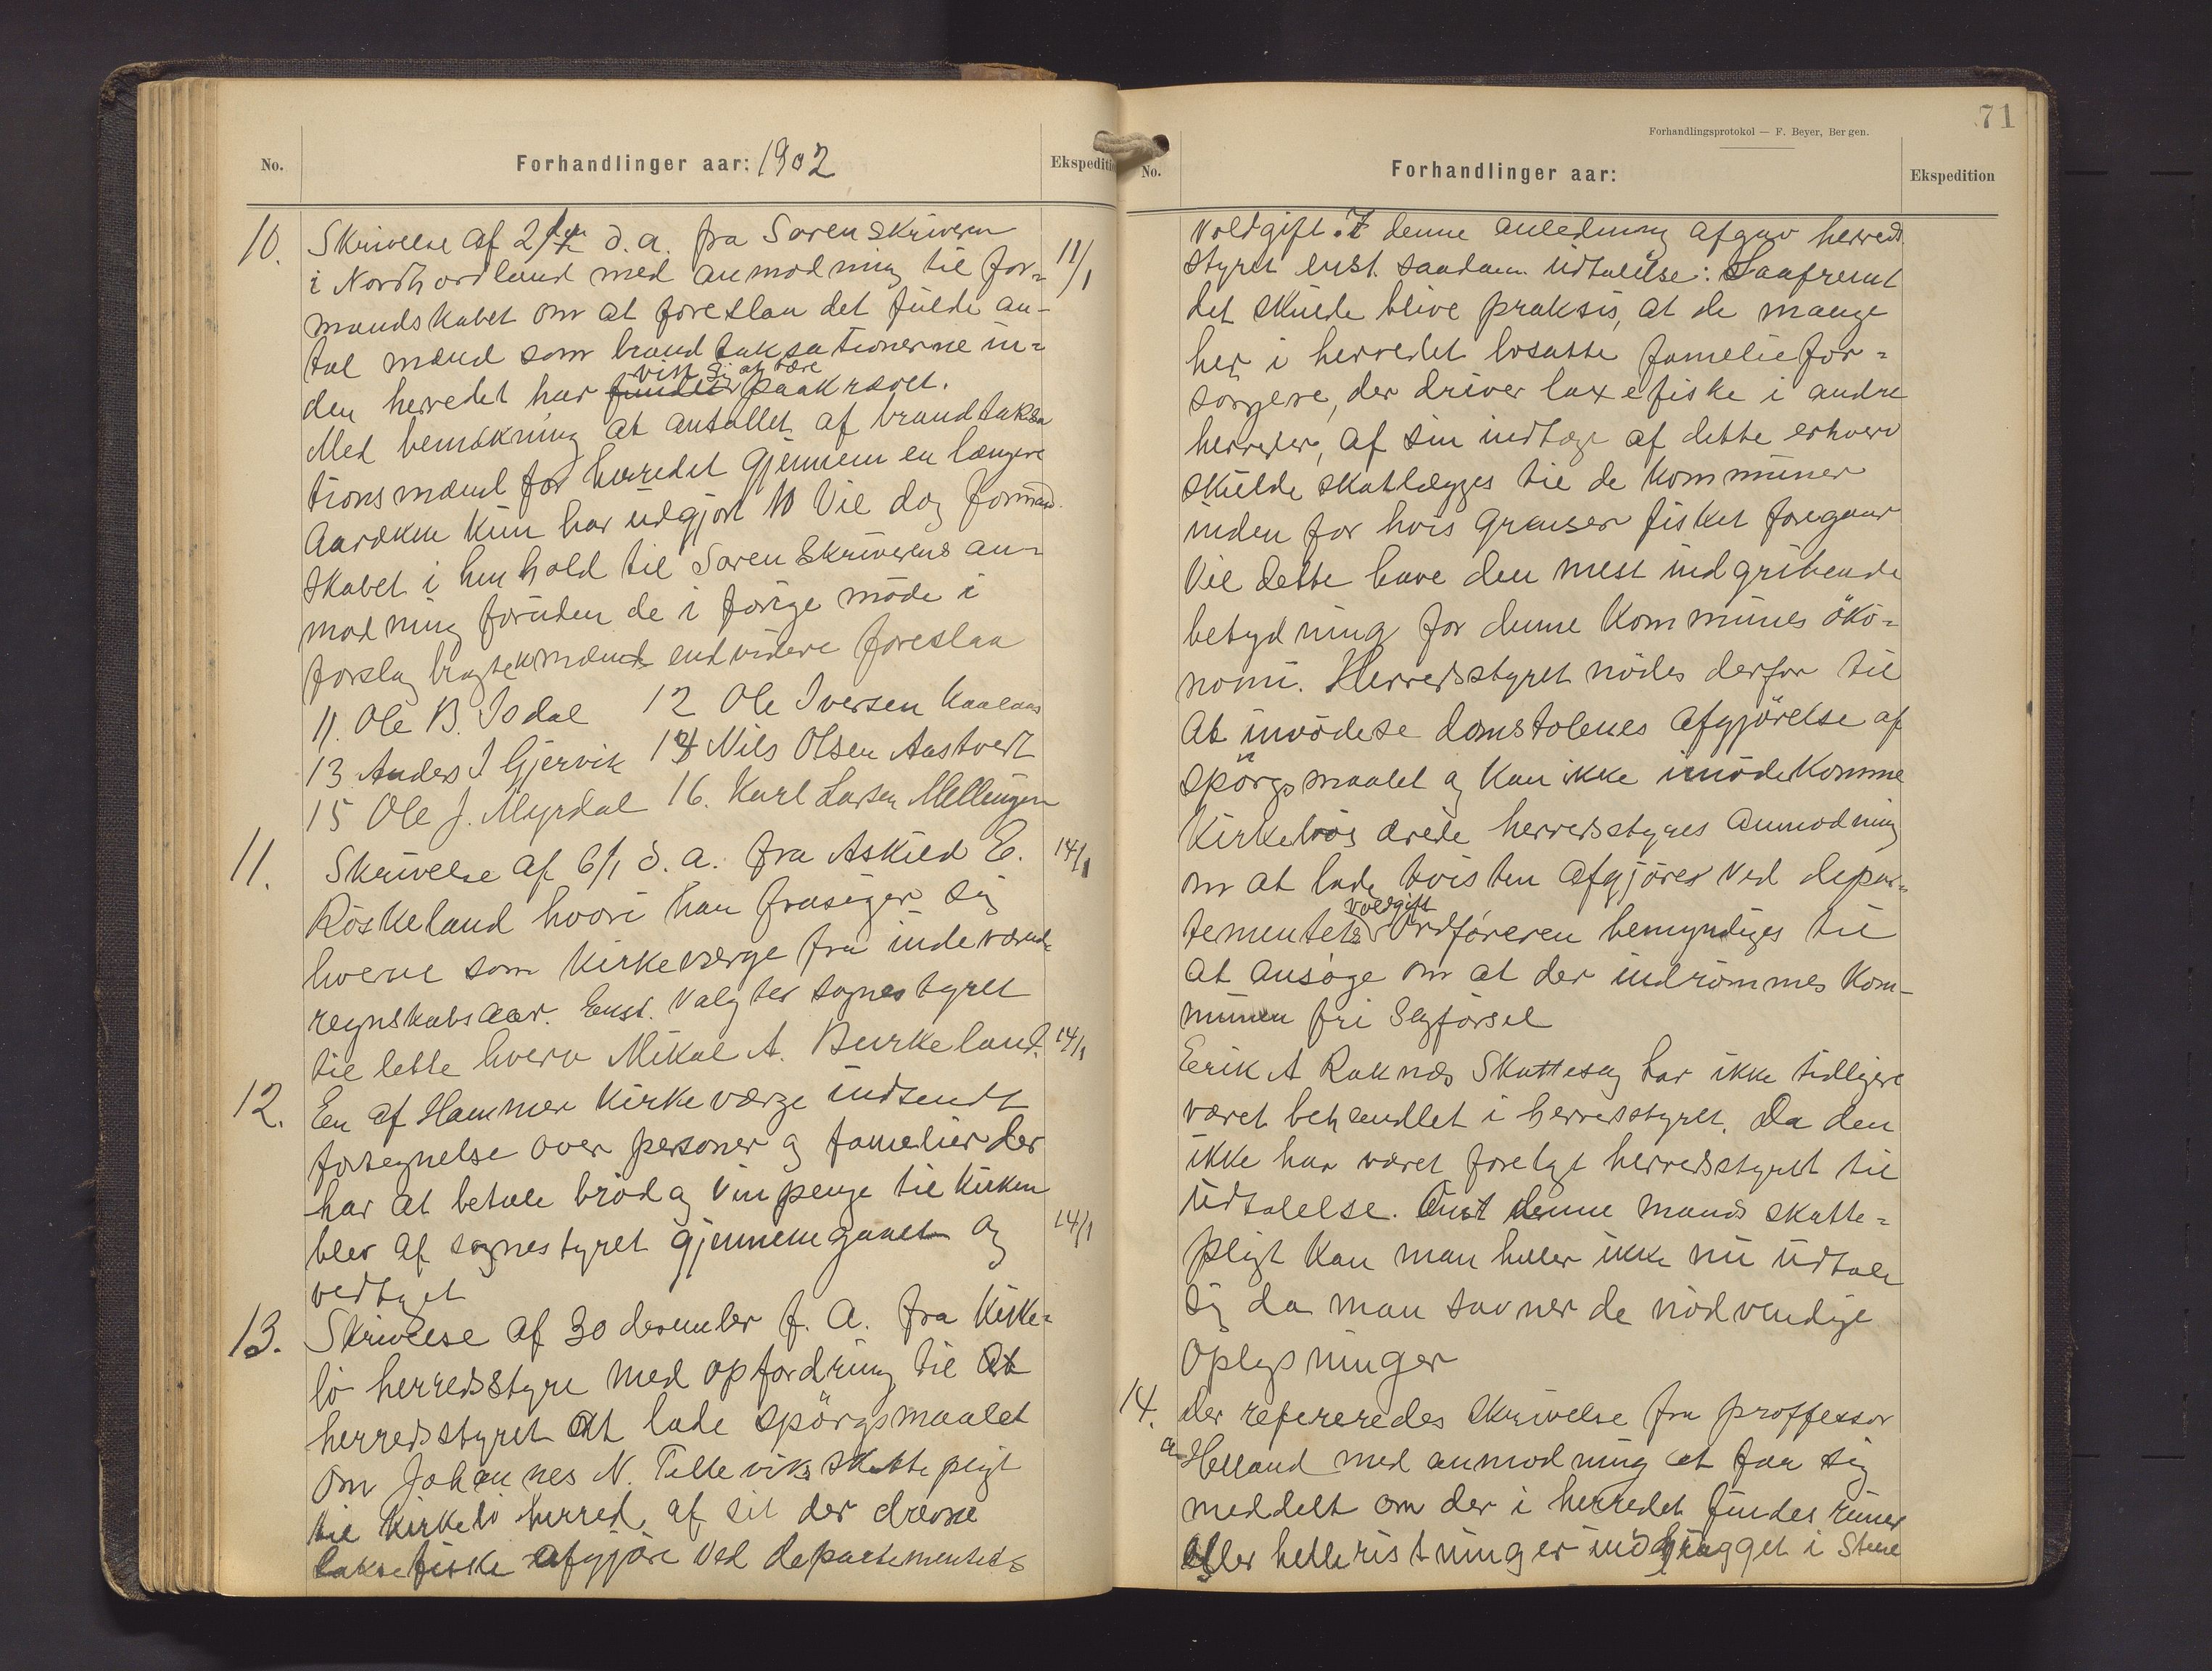 No.
Forhandlinger aar: 1902
Ekspeditio
10.
Skrivelse af 2/1 d.a. fra Sorenskriveren
11/1
i Nordhordland med anmodning til for-
mandskabet om at foreslaa det fulde an-
tal mænd som brandtaksationerne in-
vist sig at være
den herredet har fundet paakrævet.
Med bemærkning at antallet af brandtaksa
tionsmænd for herredet gjennem en længere
Aarrække kun har udgjort 10 Vil dog formand
skabet i henhold til Sorenskriverens an-
modning foruden de i forige møde i
forslag bragte mænd endvidere foreslaa
11. Ole B. Isdal 12 Ole Iversen Kaalaas
13 Anders I Gjervik 14 Nils Olsen Aastvedt
15 Ole J. Myrdal 16. Karl Larsen Mellingen
11.
Skrivelse af 6/1 d.a. fra Askild E.
14/1
Röskeland hvori han frasiger sig
hvervet som Kirkeværge fra indeværende
regnskabsaar. Enst. Valgtes sognestyret
til dette hverv Mikal A. Burkeland.
14/1
12.
En af Hammer Kirkeværge indsendt
fortegnelse over personer og familier der
har at betale bröd og vinpenge til Kirken
blev af sognestyret gjennemgaaet og
14/1
vedtaget
13.
Skrivelse af 30 desember f. A. fra Kirke-
lö herredsstyre med opfordring til at
herredsstyret at lade spörgsmaalet
om Johannes N. Tellevik's skattepligt
til Kirkelö herred, af sit der drevne
laksefiske afgjöre ved departementets
71
Forhandlingsprotokol — F. Beyer, Bergen.
No.
Forhandlinger aar:
Ekspedition
Voldgift. I denne anledning afgav herreds
styret enst. saadan udtalelse: Saafremt
det skulde blive praksis, at de mange
her i herredet bosatte familiefor-
sörgere, der driver laxefiske i andre
herreder, af sin indtægt af dette erhverv
skulde skatlægges til de kommuner
inden for hvis grænser fisket foregaar
Vil dette have den mest indgribende
betydning for denne kommunes öko-
nomi. Herredsstyret nödes derfor til
at imödese domstolenes afgjörelse af
spörgsmaalet og kan ikke imödekomme
Kirkelös ærede herredsstyres anmodning
om at lade tvisten afgjöres ved depar-
voldgift
tementets Ordföreren bemyndiges til
at ansöge om at der indrömmes kom-
munen fri Sagförsel
Erik A Raknes Skattesag har ikke tidligere
været behandlet i herredsstyret. Da den
ikke har været forelagt herredsstyret til
Udtalelse. Om denne mands skatte-
pligt kan man heller ikke nu udtale
sig da man savner de nödvendige
Oplysninger
14.
Der refereredes skrivelse fra proffessor
a
Helland med anmodning at faa sig
meddelt om der i herredet findes runer
eller helleristninger indhugget i Stene